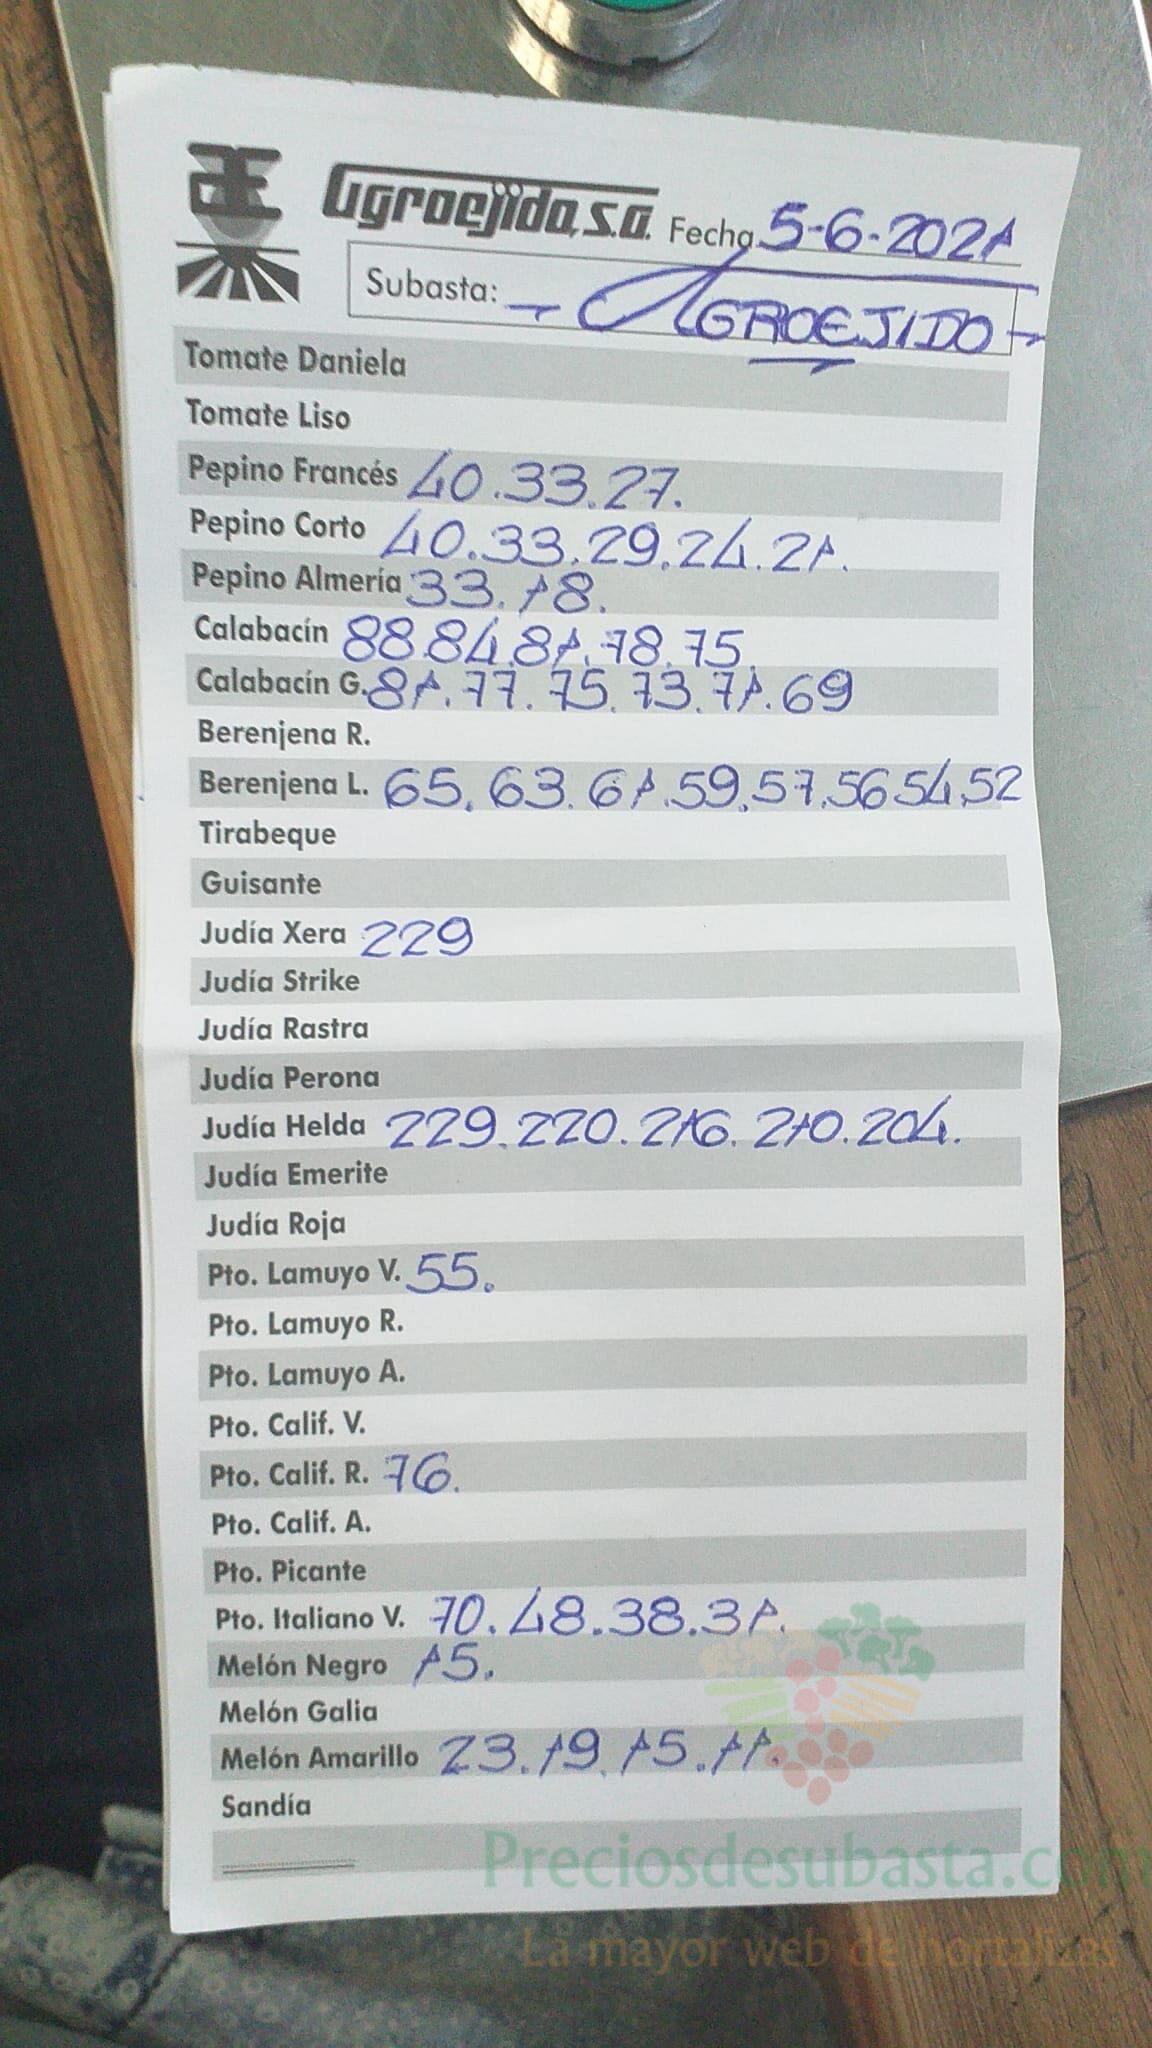 Agroejido, s.a. Fecha 5-6-2021
Subasta: - AGROEJIDO -
Tomate Daniela
Tomate Liso
Pepino Francés 40.33.27.
Pepino Corto 40.33.29.24.21.
Pepino Almería 33.18.
Calabacín 88.84.81.78.75.
Calabacín G. 81.77.75.73.71.69
Berenjena R.
Berenjena L. 65.63.61.59.57.56.54.52
Tirabeque
Guisante
Judía Xera 229
Judía Strike
Judía Rastra
Judía Perona
Judía Helda 229.220.216.210.204.
Judía Emerite
Judía Roja
Pto. Lamuyo V. 55.
Pto. Lamuyo R.
Pto. Lamuyo A.
Pto. Calif. V.
Pto. Calif. R. 76.
Pto. Calif. A.
Pto. Picante
Pto. Italiano V. 70.48.38.31.
Melón Negro 15.
Melón Galia
Melón Amarillo 23.19.15.11.
Sandía
Preciosdesubasta.com
La mayor web de hortalizas